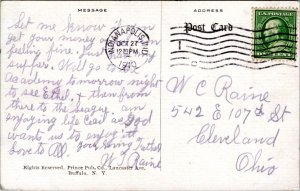 MESSAGE
ADDRESS
Let me know
get your
feeling fine. Just
supper. Will go to
Academy tomorrow night
to see Ethel, & then from
there to the League. am
enjoying life East as God
want us to enjoy it
Love to all your loving Father
W C Raine
Post Card
INDIANAPOLIS, IND.
OCT 27
12 30 PM
1910
W C Raine
542 E 107th St
Cleveland
Ohio
Rights Reserved. Prince Pub. Co., Lancaster Ave.
Buffalo, N. Y.